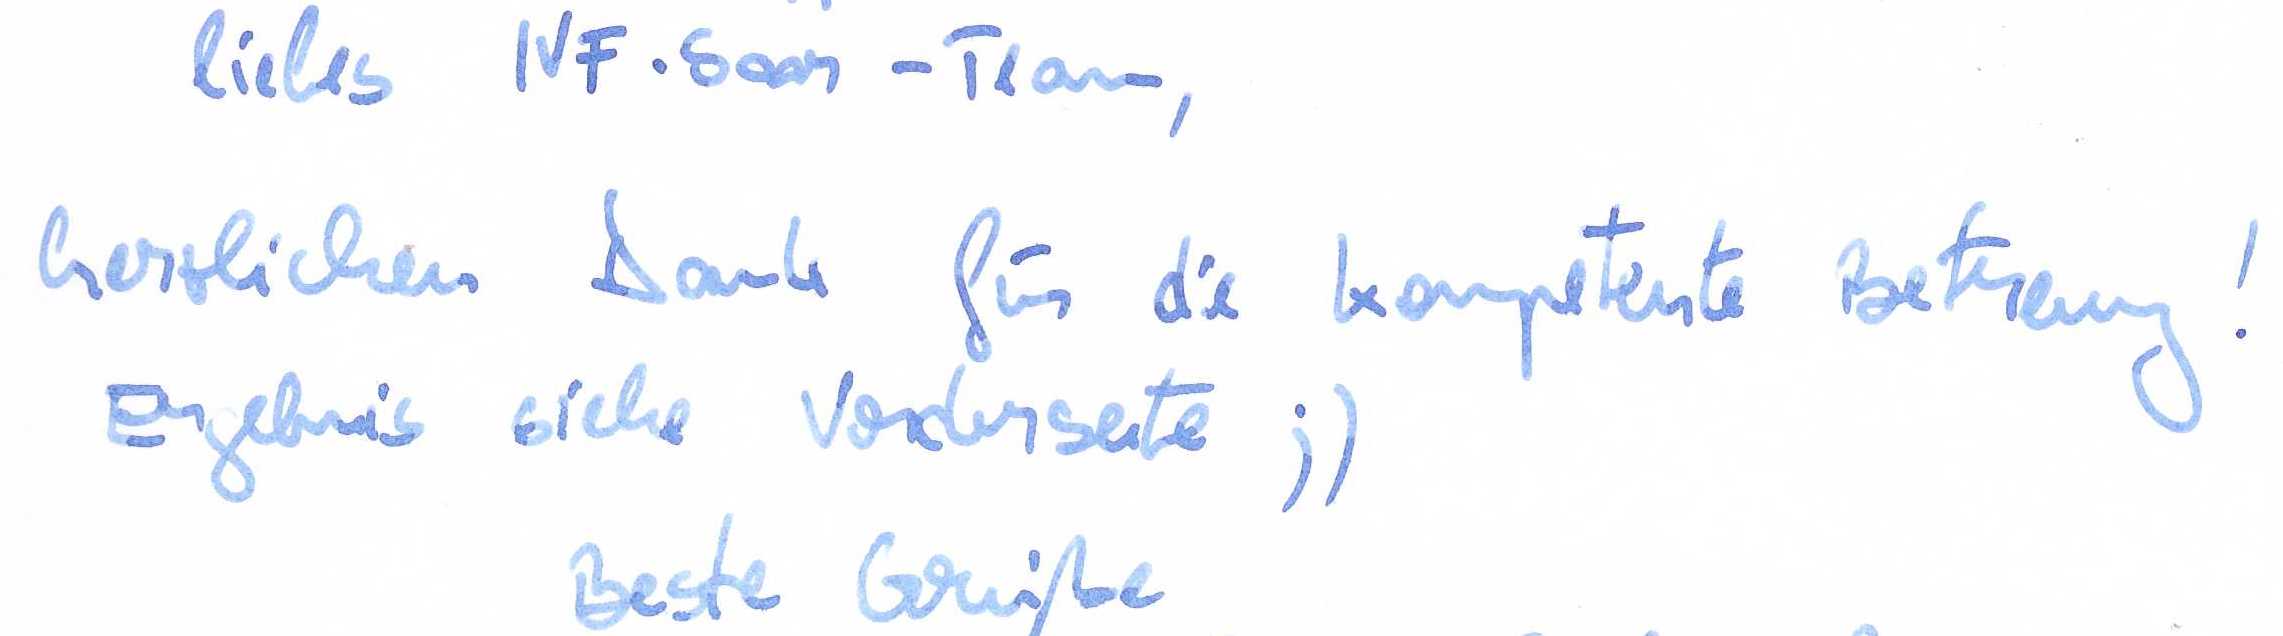 liebes IVF-Saar-Team,
herzlichen Dank für die kompetente Betreuung!
Ergebnis siehe Vorderseite ;)
Beste Grüße